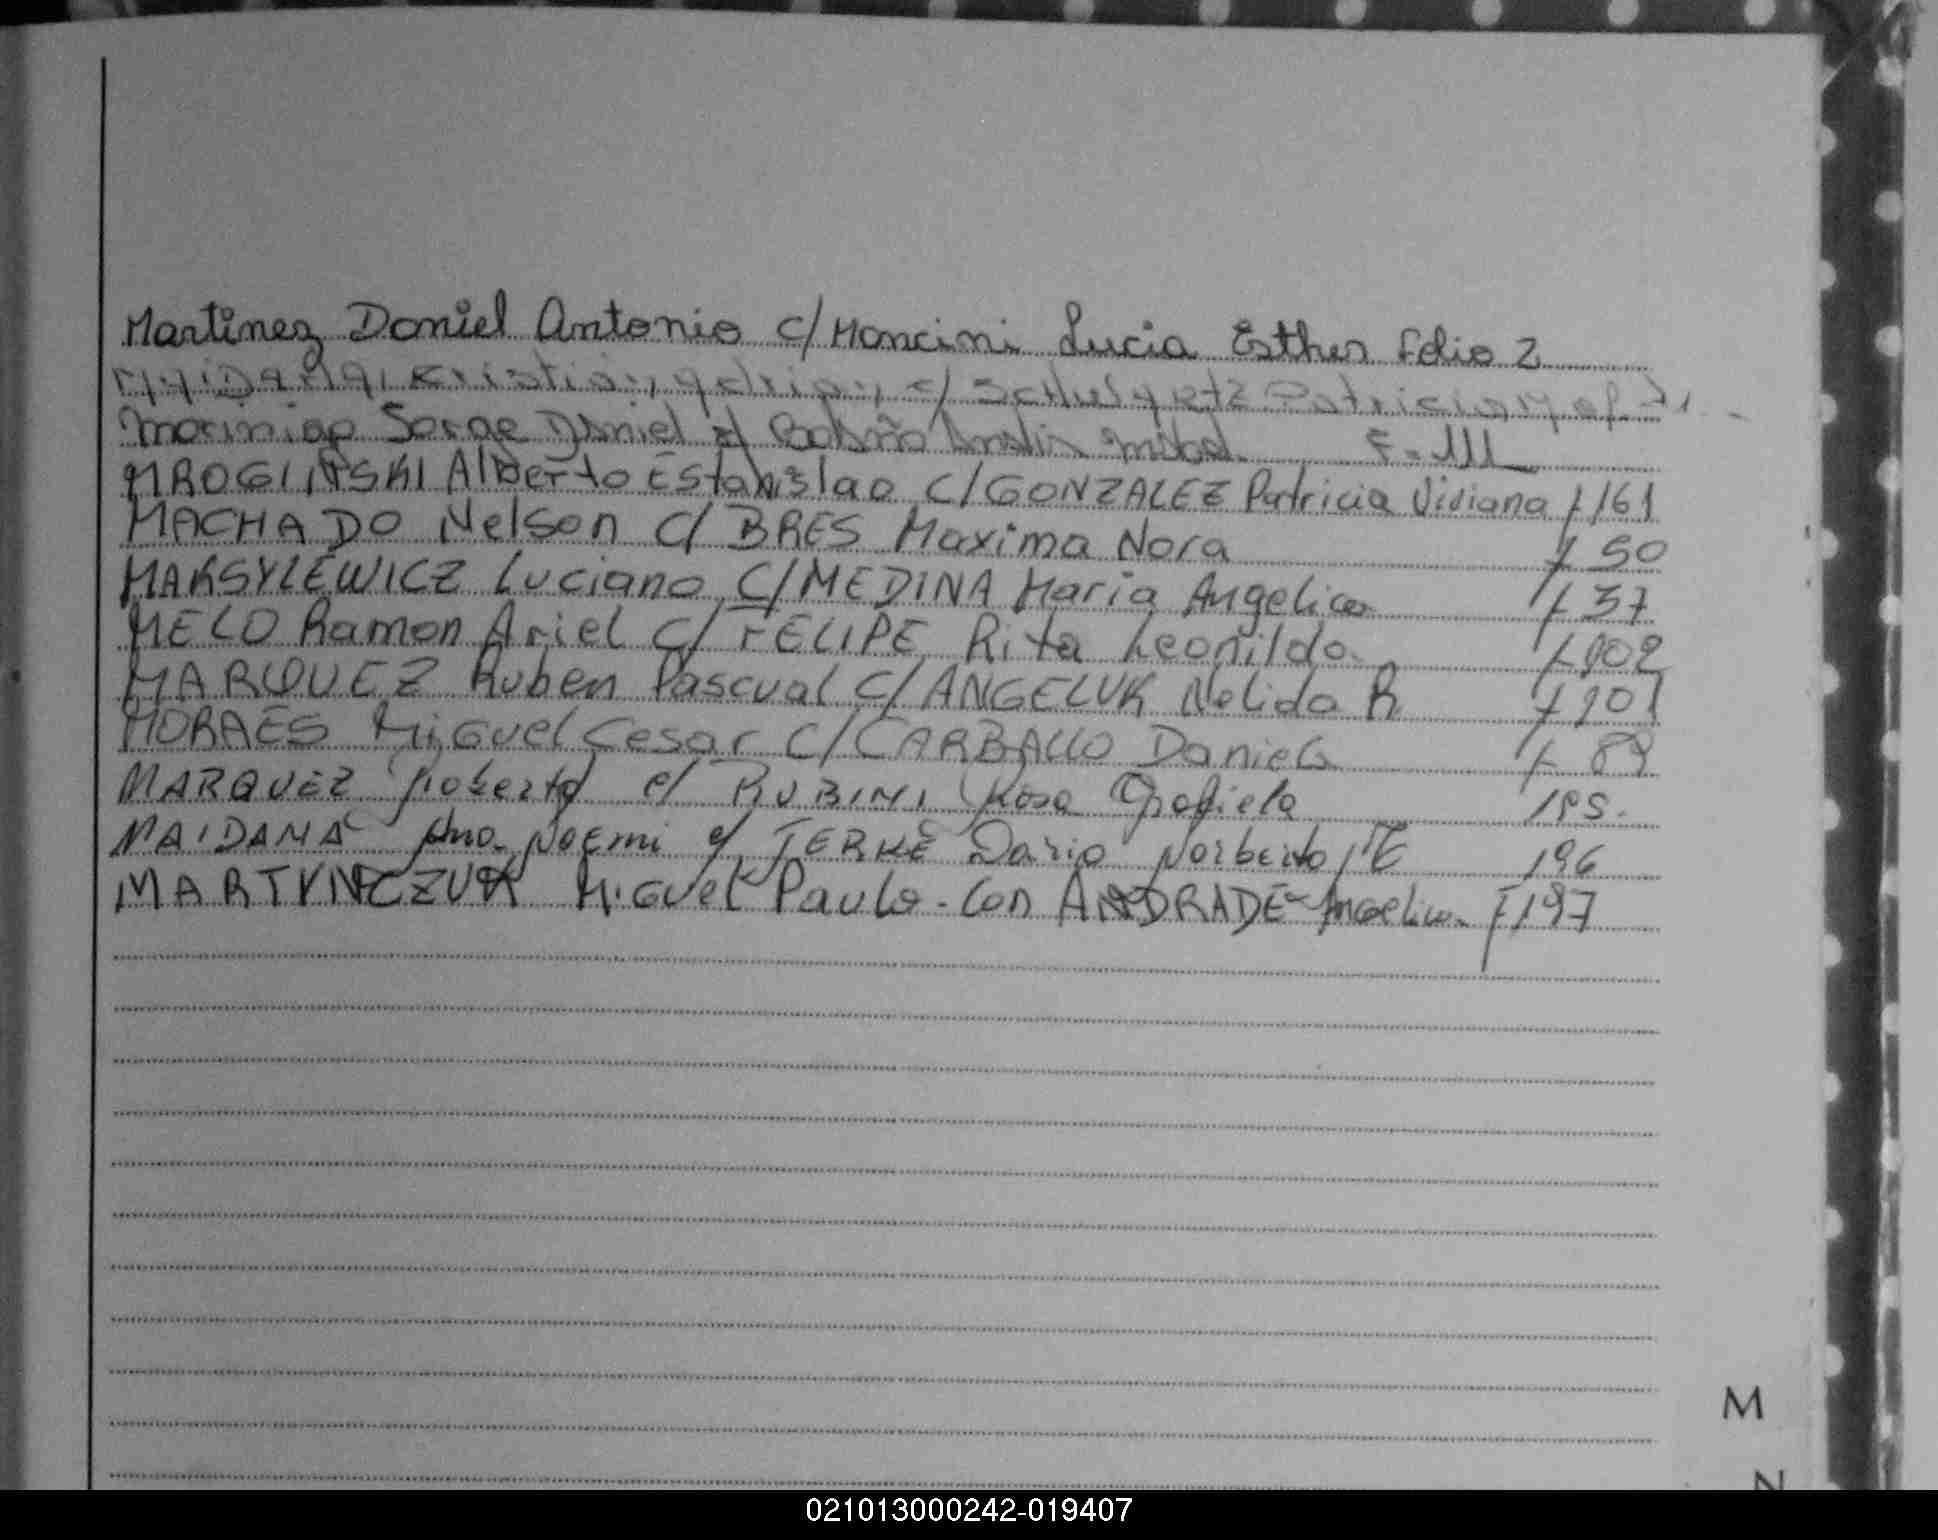 Martinez Daniel Antonio c/ Mancini Lucia Esther Folio 2
Cristian Adrian c/ Patricia
Daniel c/ F-111
MROGINSKI Alberto Estanislao C/ GONZALEZ Patricia Viviana f 161
MACHADO Nelson C/ BRES Maxima Nora f 50
MAKSYLEWICZ Luciano C/ MEDINA Maria Angelica f 37
MELO Ramon Ariel C/ FELIPE Rita Leonilda f 102
MARQUEZ Ruben Pascual C/ ANGELUK Nelida R f 101
MORAES Miguel Cesar C/ CARBALLO Daniela f 89
MARQUEZ Roberto c/ RUBINI Rosa Graciela 195.
MAIDANA Ana Noemi c/ TERKE Dario Norberto 196
MARTYNCZUK Miguel Paulo - Con ANDRADE Angelica - F 197
M
N
021013000242-019407